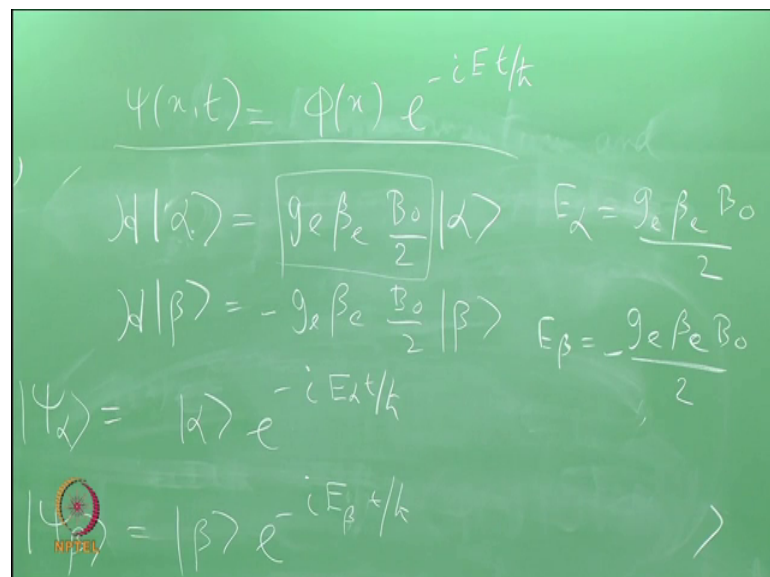 ψ(x,t) = φ(x) e^{-iEt/ħ}
ℋ|α⟩ = g_e β_e B_0/2 |α⟩ E_α = g_e β_e B_0/2
ℋ|β⟩ = - g_e β_e B_0/2 |β⟩ E_β = - g_e β_e B_0/2
|Ψ_α⟩ = |α⟩ e^{-iE_α t/ħ}
|Ψ_β⟩ = |β⟩ e^{-iE_β t/ħ}
NPTEL